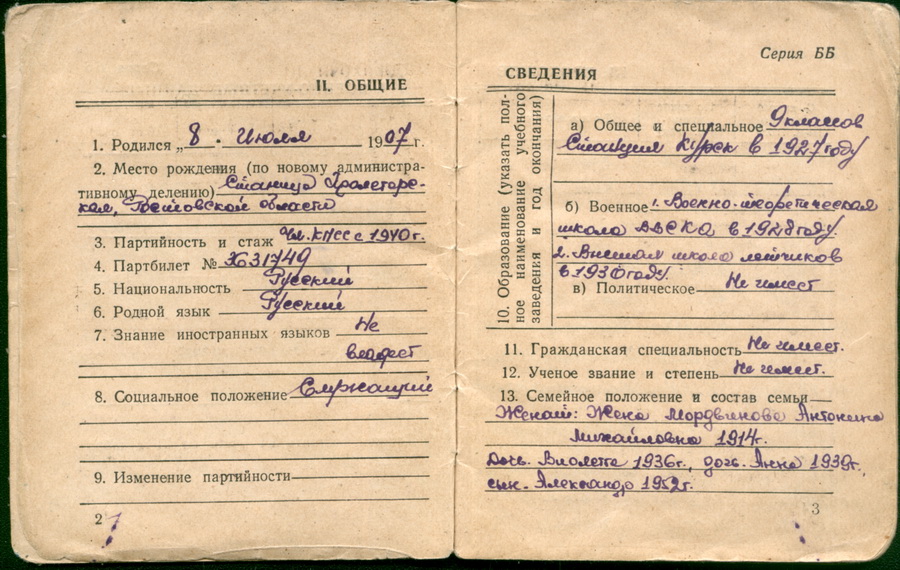 II. ОБЩИЕ
1. Родился „8. Июля 1907 г.
2. Место рождения (по новому администра-
тивному делению) Станица Пролетарс-
кая, Ростовской области
3. Партийность и стаж Чл. КПСС с 1940 г.
4. Партбилет №
5. Национальность Русский
6. Родной язык Русский
7. Знание иностранных языков Не
владеет
8. Социальное положение Служащий
9. Изменение партийности
2
Серия ББ
СВЕДЕНИЯ
10. Образование (указать пол-
ное наименование учебного
заведения и год окончания)
а) Общее и специальное 9 классов
Станция Курск в 1927 году
б) Военное 1. Военно-теоретическая
школа ВВСКА в 1928 году.
2. школа летчиков
в 1930 году.
в) Политическое Не имеет
11. Гражданская специальность Не имеет.
12. Ученое звание и степень Не имеет.
13. Семейное положение и состав семьи
Женат: Жена Мордвинова Антонина
Михайловна 1914 г.
дочь. Виолетта 1936 г., дочь. Анна 1939 г.,
сын. Александр 1952 г.
3